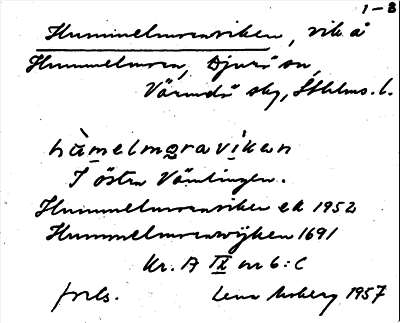 1-3
Hummelmoraviken, vik å
Hummelmora, Djurö sn,
Värmdö skg, Sthlms. l.
hùmelmoraviken
I östra Vämlingen.
Hummelmoraviken ek 1952
Hummelmorawijken 1691
kr. A IX nr 6:C
forts. Lena Moberg 1957